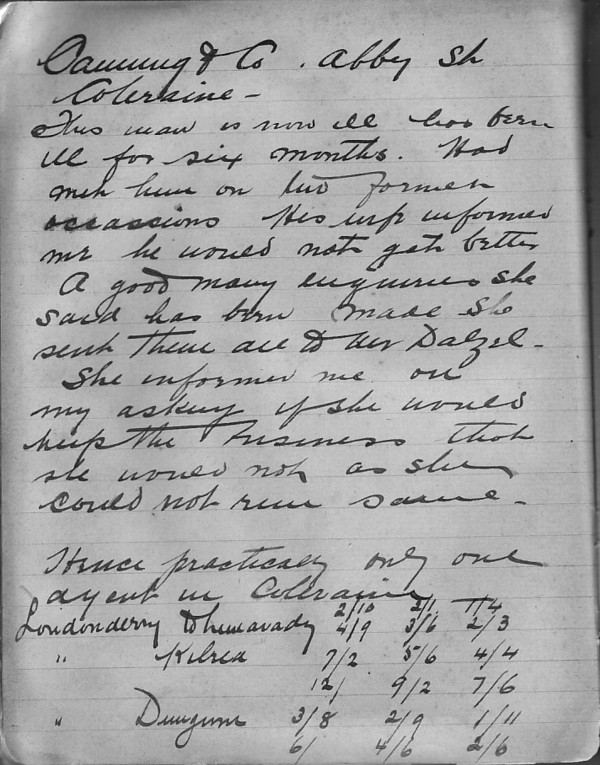 Canning & Co. Abby St
Coleraine -
This man is now ill has been
ill for six months. Had
met him on two former
occassions His wife informed
me he would not get better
A good many enquiries she
said has been made She
sent them all to Mr Dalzel -
She informed me on
my asking if she would
keep the business that
she would not as she
could not run same -
Hence practically only one
agent in Coleraine
2/10 2/1 1/4
Londonderry to Limavady 4/9 3/6 2/3
" Kilrea 7/2 5/6 4/4
12/ 9/2 7/6
" Dungiven 3/8 2/9 1/11
6/ 4/6 2/6